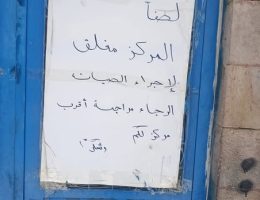 لطفاً
المركز مغلق
لإجراء الصيانات
الرجاء مراجعة أقرب
مركز لكم
وشكراً